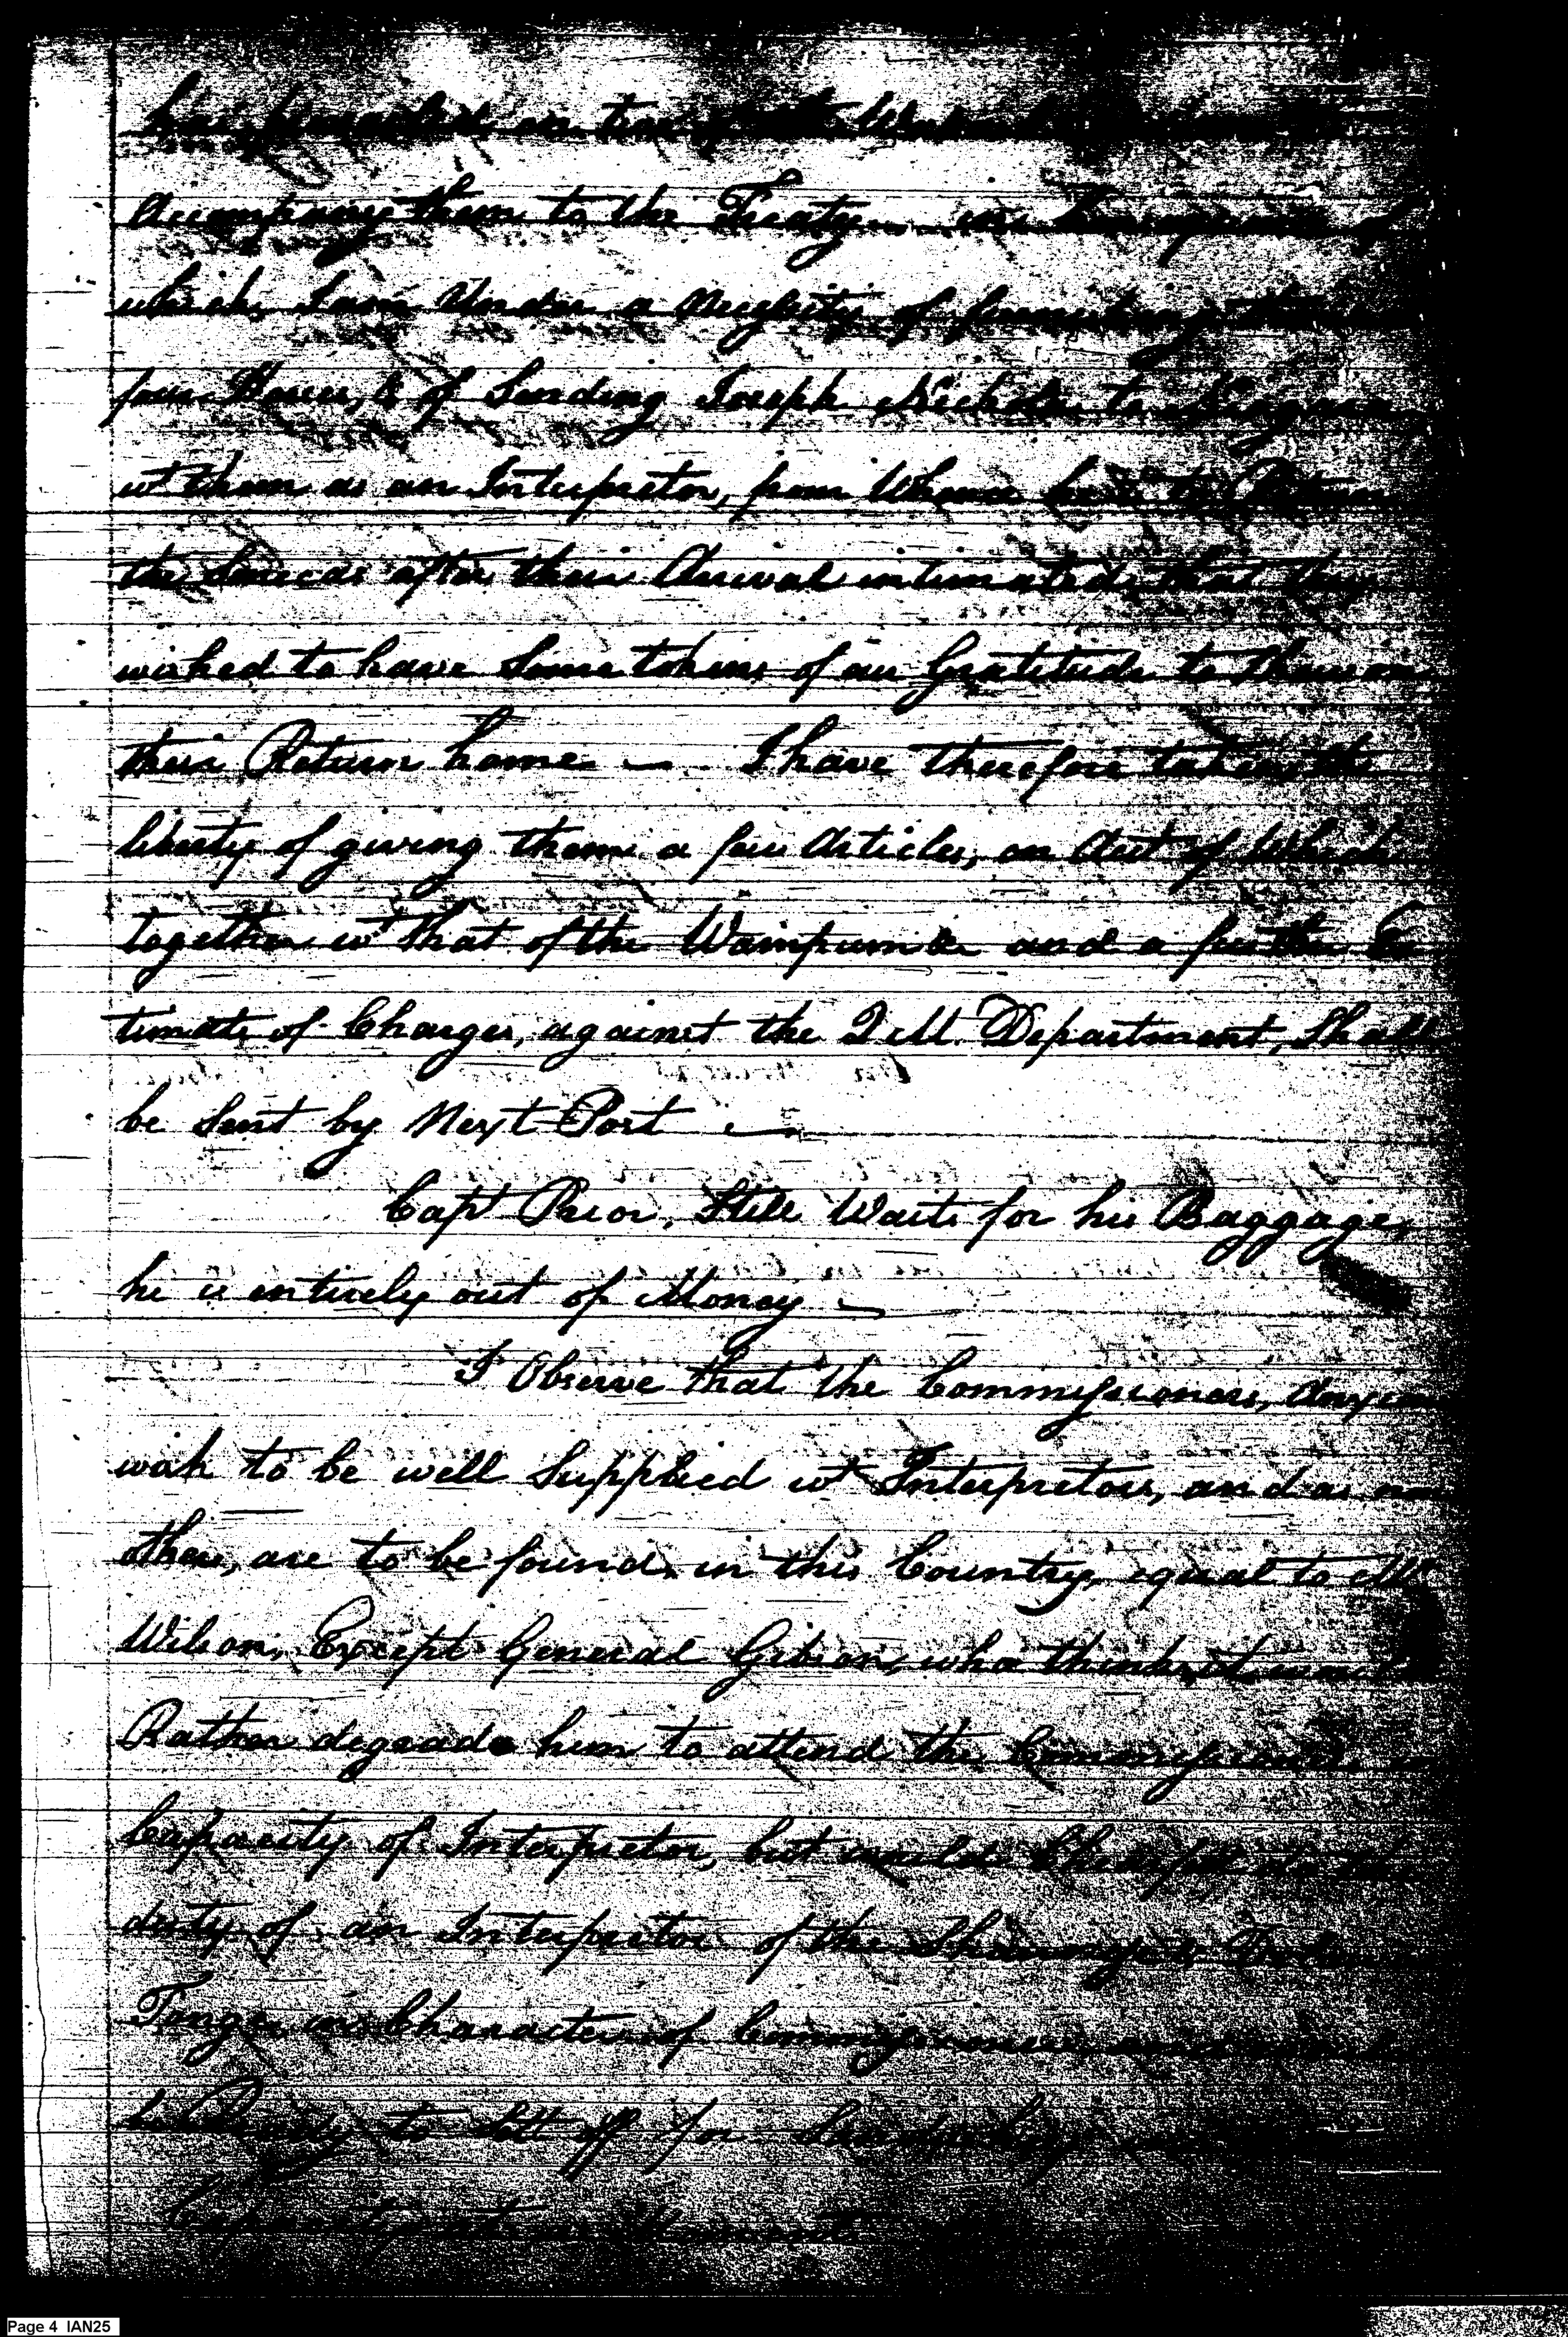 Accompany them to the Treaty in Consequence of
which, I am Under a Necessity of furnishing them
four Horses, & of Sending Joseph Nicholas to Niagara
wt them as an Interpretor, from Whence he is to Return
the Senecas after their Arrival intimated, that they
wished to have Some tokens of our Gratitude to Shew on
their Return home — I have therefore taken the
liberty of giving them a few Articles, an Acct of Which
together wt that of the Wampum &c and a further Es
timate of Charges, against the Q M. Department, Shall
be Sent by Next Post —
Capt Prior, Still Waits for his Baggage,
he is entirely out of Money —
I Observe that the Commissioners, Anxious
wish to be well Supplied wt Interpretors, and as no
others, are to be found in this Country, equal to Mr
Wilson, Except General Gibson, who thinks it would
Rather degrade him to attend the Commissioners in
Capacity of Interpretor, but would
duty of an Interpretor of the Shawnese &
Tongue in Character of Commissioner and
to Sett off for Sandusky
Page 4 IAN25